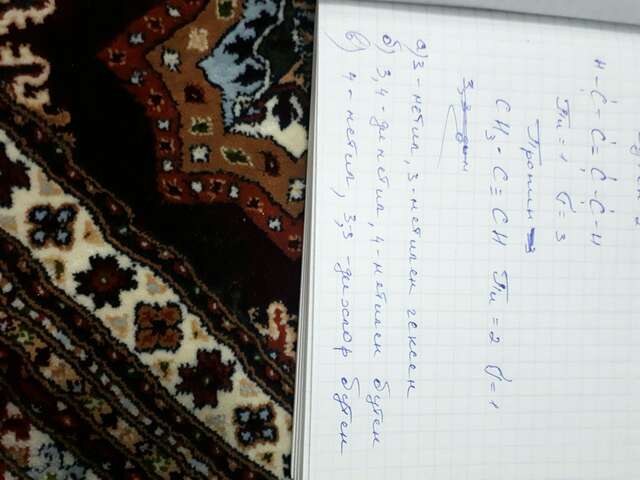 H-C-C=C-C-H
Пи=1 σ=3
Пропин
CH₃-C≡CH Пи=2 σ=1
а) 3-метил, 3-метилен гексен
б) 3,4-диметил, 4-метилен бутен
в) 4-метил, 3,3-дихлор бутен